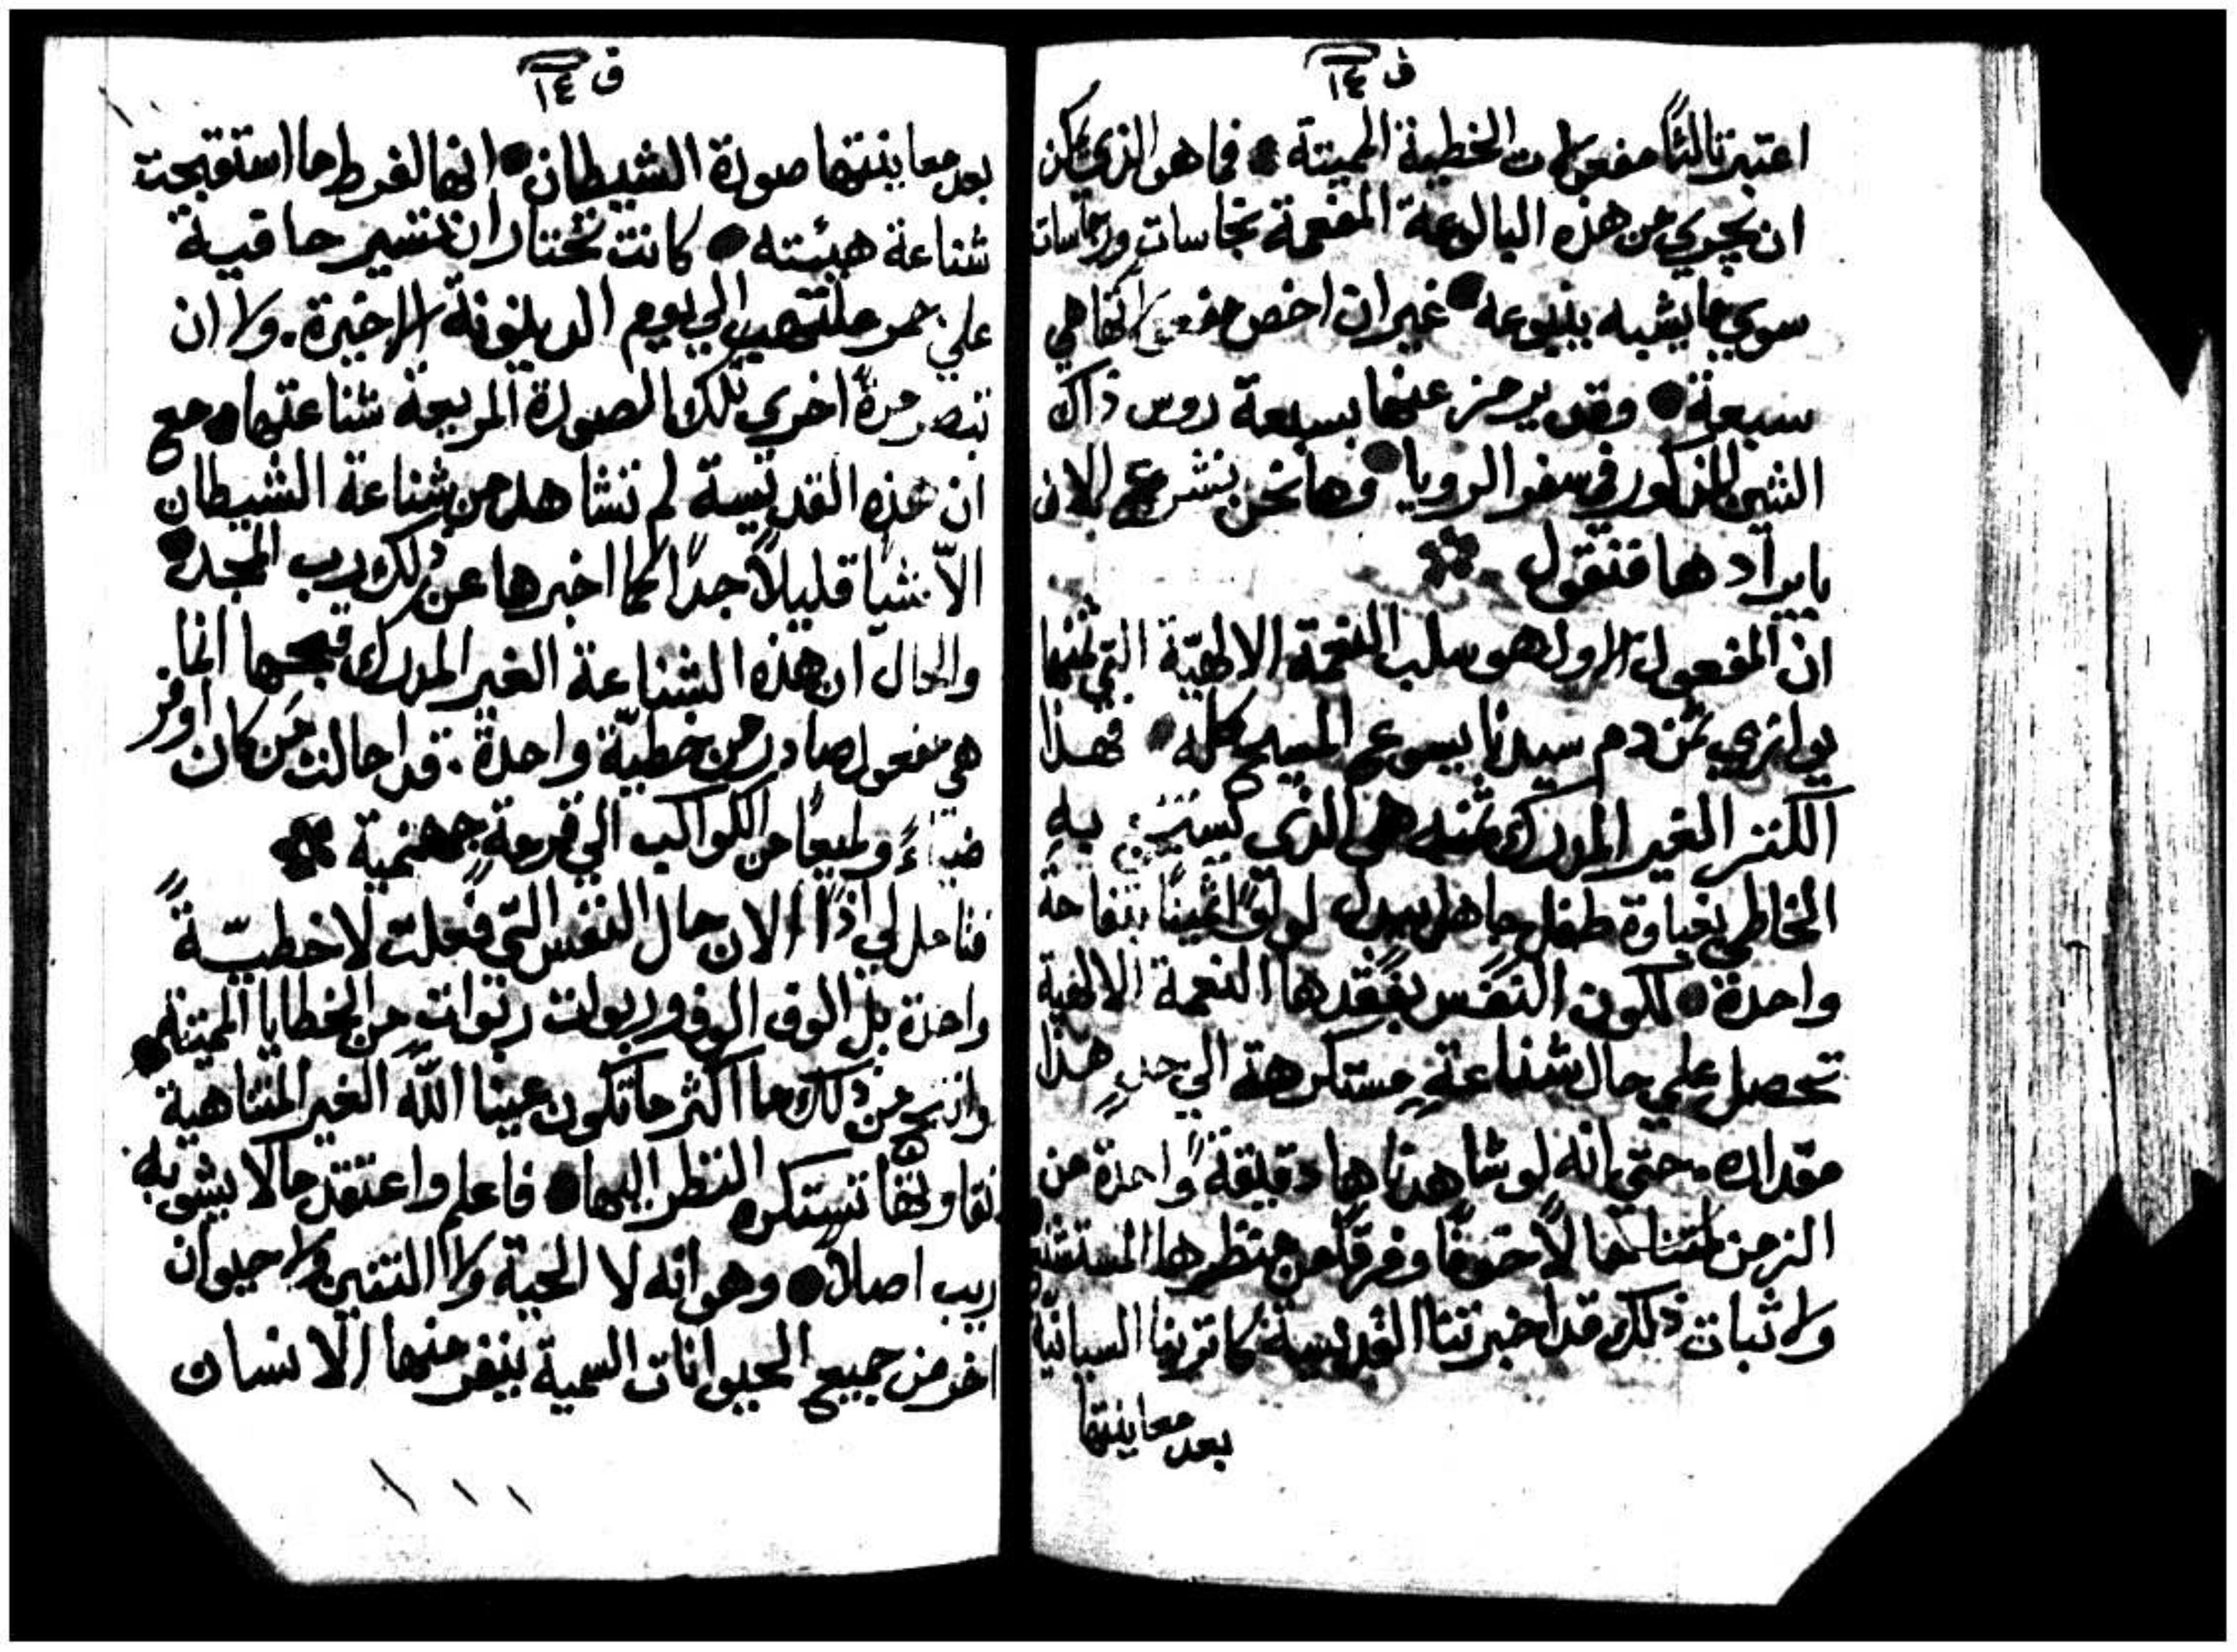 ف ١٤
اعتبر ثالثًا مفعولات الخطية المميتة • فما هو الذي يمكن
ان يجري من هذه البالوعة المفعمة نجاسات ورجاسات
سوي ما يشبه ينبوعه • غير ان اخص مفعولاتها هي
سبعة • وقد يرمز عنها بسبعة روس ذاك
التنين المذكور في سفر الرويا • وها نحن نشرع الان
بايرادها فنقول
ان المفعول الاول هو سلب النعمة الالهيّة التي ثمنها
يوازي ثمن دم سيدنا يسوع المسيح كله • فهذا
الكنز الغير المدرك ثمنه هي الذي به
الخاطي بغباوة طفل جاهل يبدل لولوًا ثمينًا بتفاحة
واحدة • لكون النفس بفقدها النعمة الالهية
تحصل علي حال شناعةٍ مستكرهة الي حدٍ هذا
مقداره. حتي انه لو شاهدناها دقيقةً واحدة من
الزمن لمتنا حالًا خوفًا وفرقًا من منظرها المستشنع
ولاثبات ذلك قد اخبرتنا القديسة كاترينا السيانيّة
بعد معاينتها
ف ١٤
بعد معاينتها صورة الشيطان • انها لفرط ما استقبحت
شناعة هيئته • كانت تختار ان تسير حافية
علي جمر ملتهب الي يوم الدينونة الاخيرة. ولا ان
تبصر مرةً اخري تلك الصورة المريعة شناعتها • مع
ان هذه القديسة لم تشاهد من شناعة الشيطان
الّا شيًا قليلًا جدًا كما اخبرها عن ذلك رب المجد •
والحال ان هذه الشناعة الغير المدرك قبحها انما
هي مفعول صادر من خطيّة واحدة. قد احالت مَن كان اوفر
ضياءً ولميعًا من الكواكب الي فحمةٍ جهنمية
فتامل لي اذًا الان حال النفس التي فعلت لا خطيّةً
واحدة بل الوف الوف وربوات ربوات من الخطايا المميتة •
وانتج من ذلك ما اكثر ما تكون عينا اللّه الغير المتناهية
نقاوتها تستكره النظر اليها • فاعلم واعتقد ما لا يشوبه
ريب اصلًا • وهو انه لا الحية ولا التنين ولا حيوان
اخر من جميع الحيوانات السمية ينفر منها الانسان